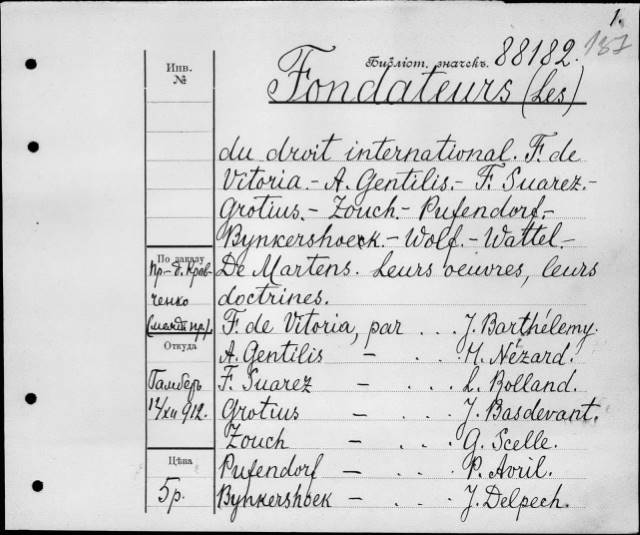 1.
Инв.
№
Библіот. значекъ. 88182.
187
Fondateurs (Les)
du droit international. F. de
Vitoria.- A. Gentilis.- F. Suarez.-
Grotius.- Zouch.- Pufendorf.-
Bynkershoek.- Wolf.- Wattel.-
По заказу
Пр-д. Крав-
ченко
(межд. пр.)
De Martens. Leurs oeuvres, leurs
doctrines.
F. de Vitoria, par . . . J. Barthélemy.
Откуда
A. Gentilis — . . . H. Nézard.
Гамберъ
12/XII 912.
F. Suarez — . . . L. Rolland.
Grotius — . . . J. Basdevant.
Zouch — . . . G. Scelle.
Цѣна
5 р.
Pufendorf — . . . P. Avril.
Bynkershoek — . . . J. Delpech.